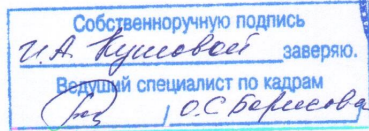 Собственноручную подпись
И.А. Кушовой заверяю.
Ведущий специалист по кадрам
/ О.С. Борисова